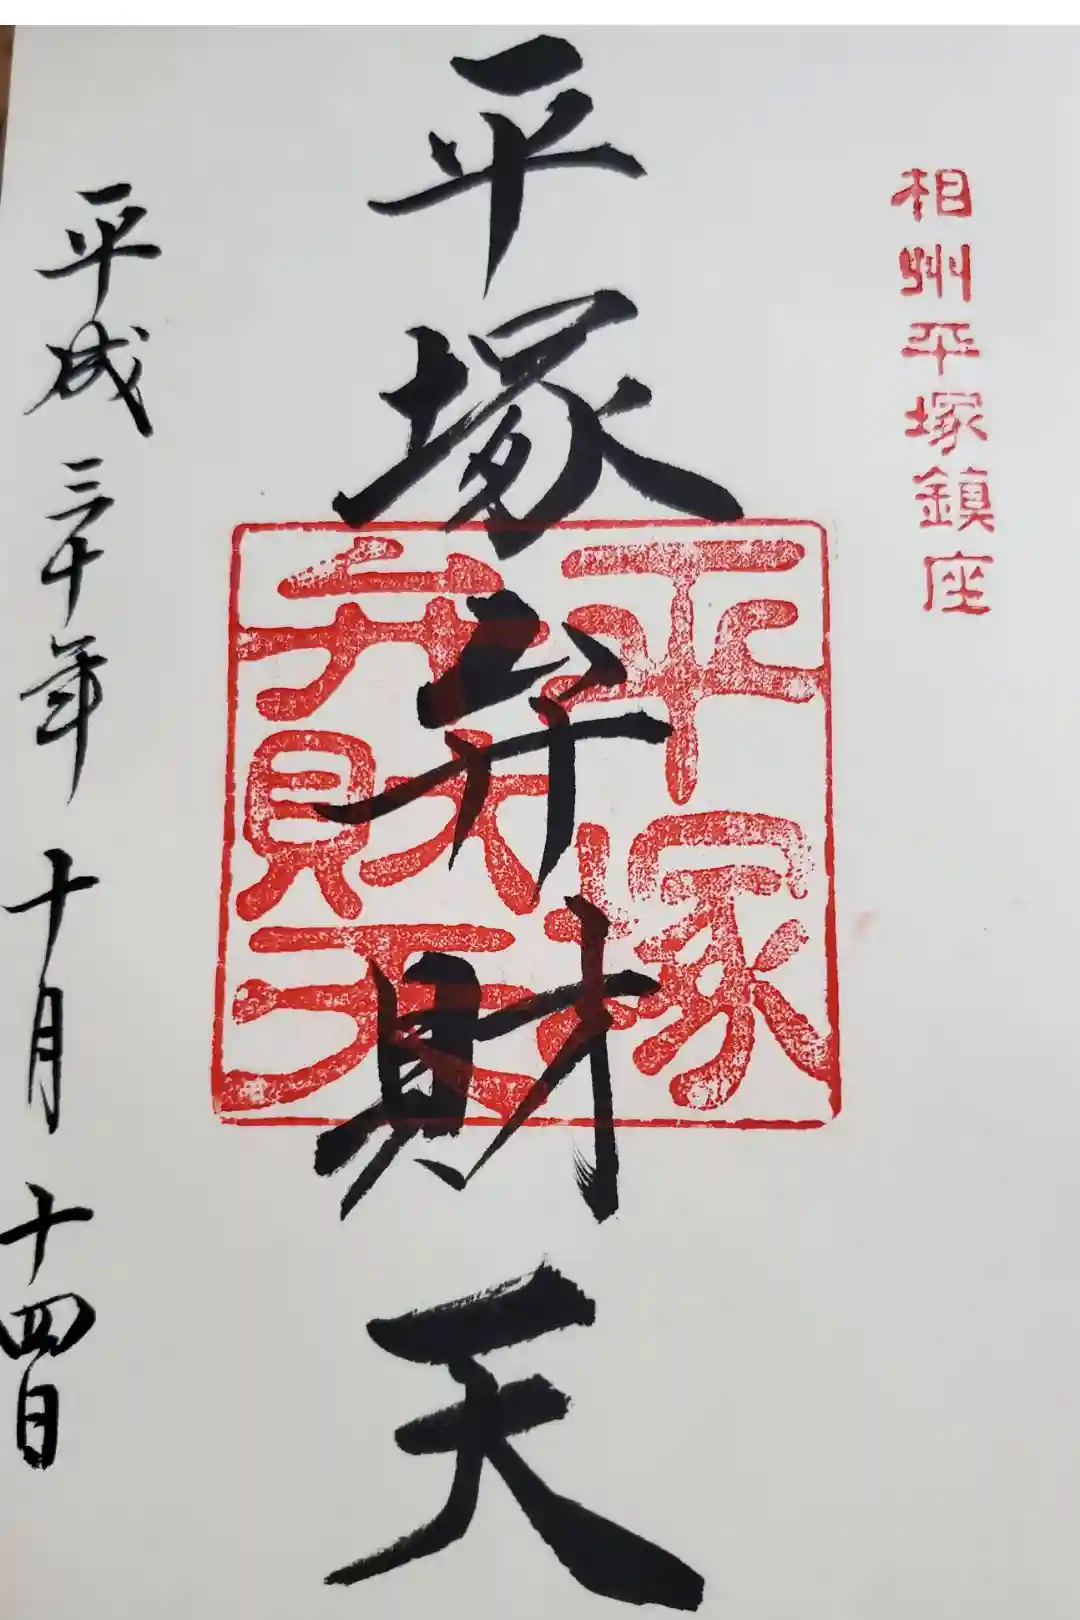 相州平塚鎮座
平塚弁財天
平塚
弁財天
平成三十年十月十四日